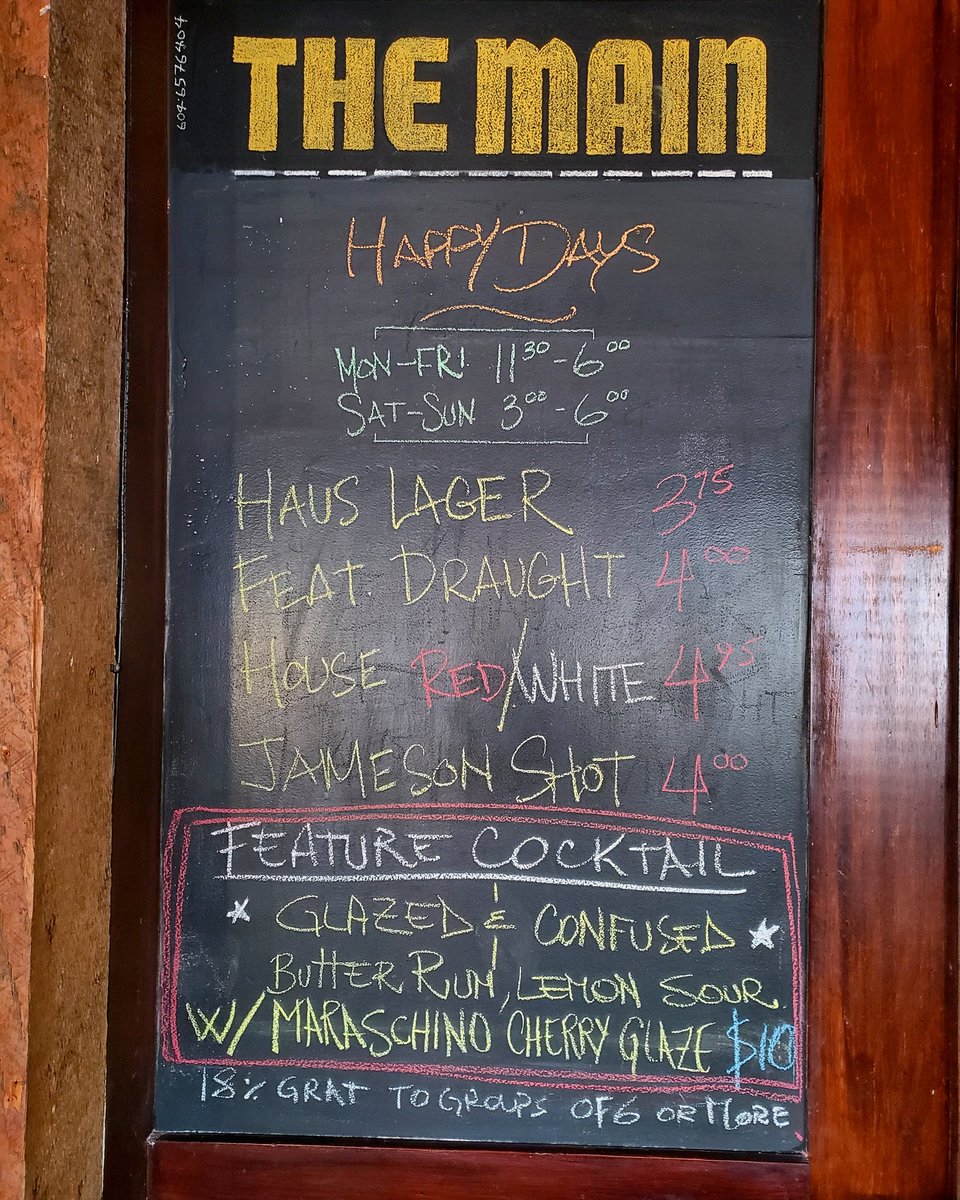 604-6576404
THE MAIN
HAPPY DAYS
MON-FRI 11³⁰-6⁰⁰
SAT-SUN 3⁰⁰-6⁰⁰
HAUS LAGER 3⁷⁵
FEAT. DRAUGHT 4⁰⁰
HOUSE RED/WHITE 4⁹⁵
JAMESON SHOT 4⁰⁰
FEATURE COCKTAIL
GLAZED & CONFUSED
BUTTER RUM, LEMON SOUR
W/ MARASCHINO CHERRY GLAZE $10
18% GRAT TO GROUPS OF 6 OR MORE